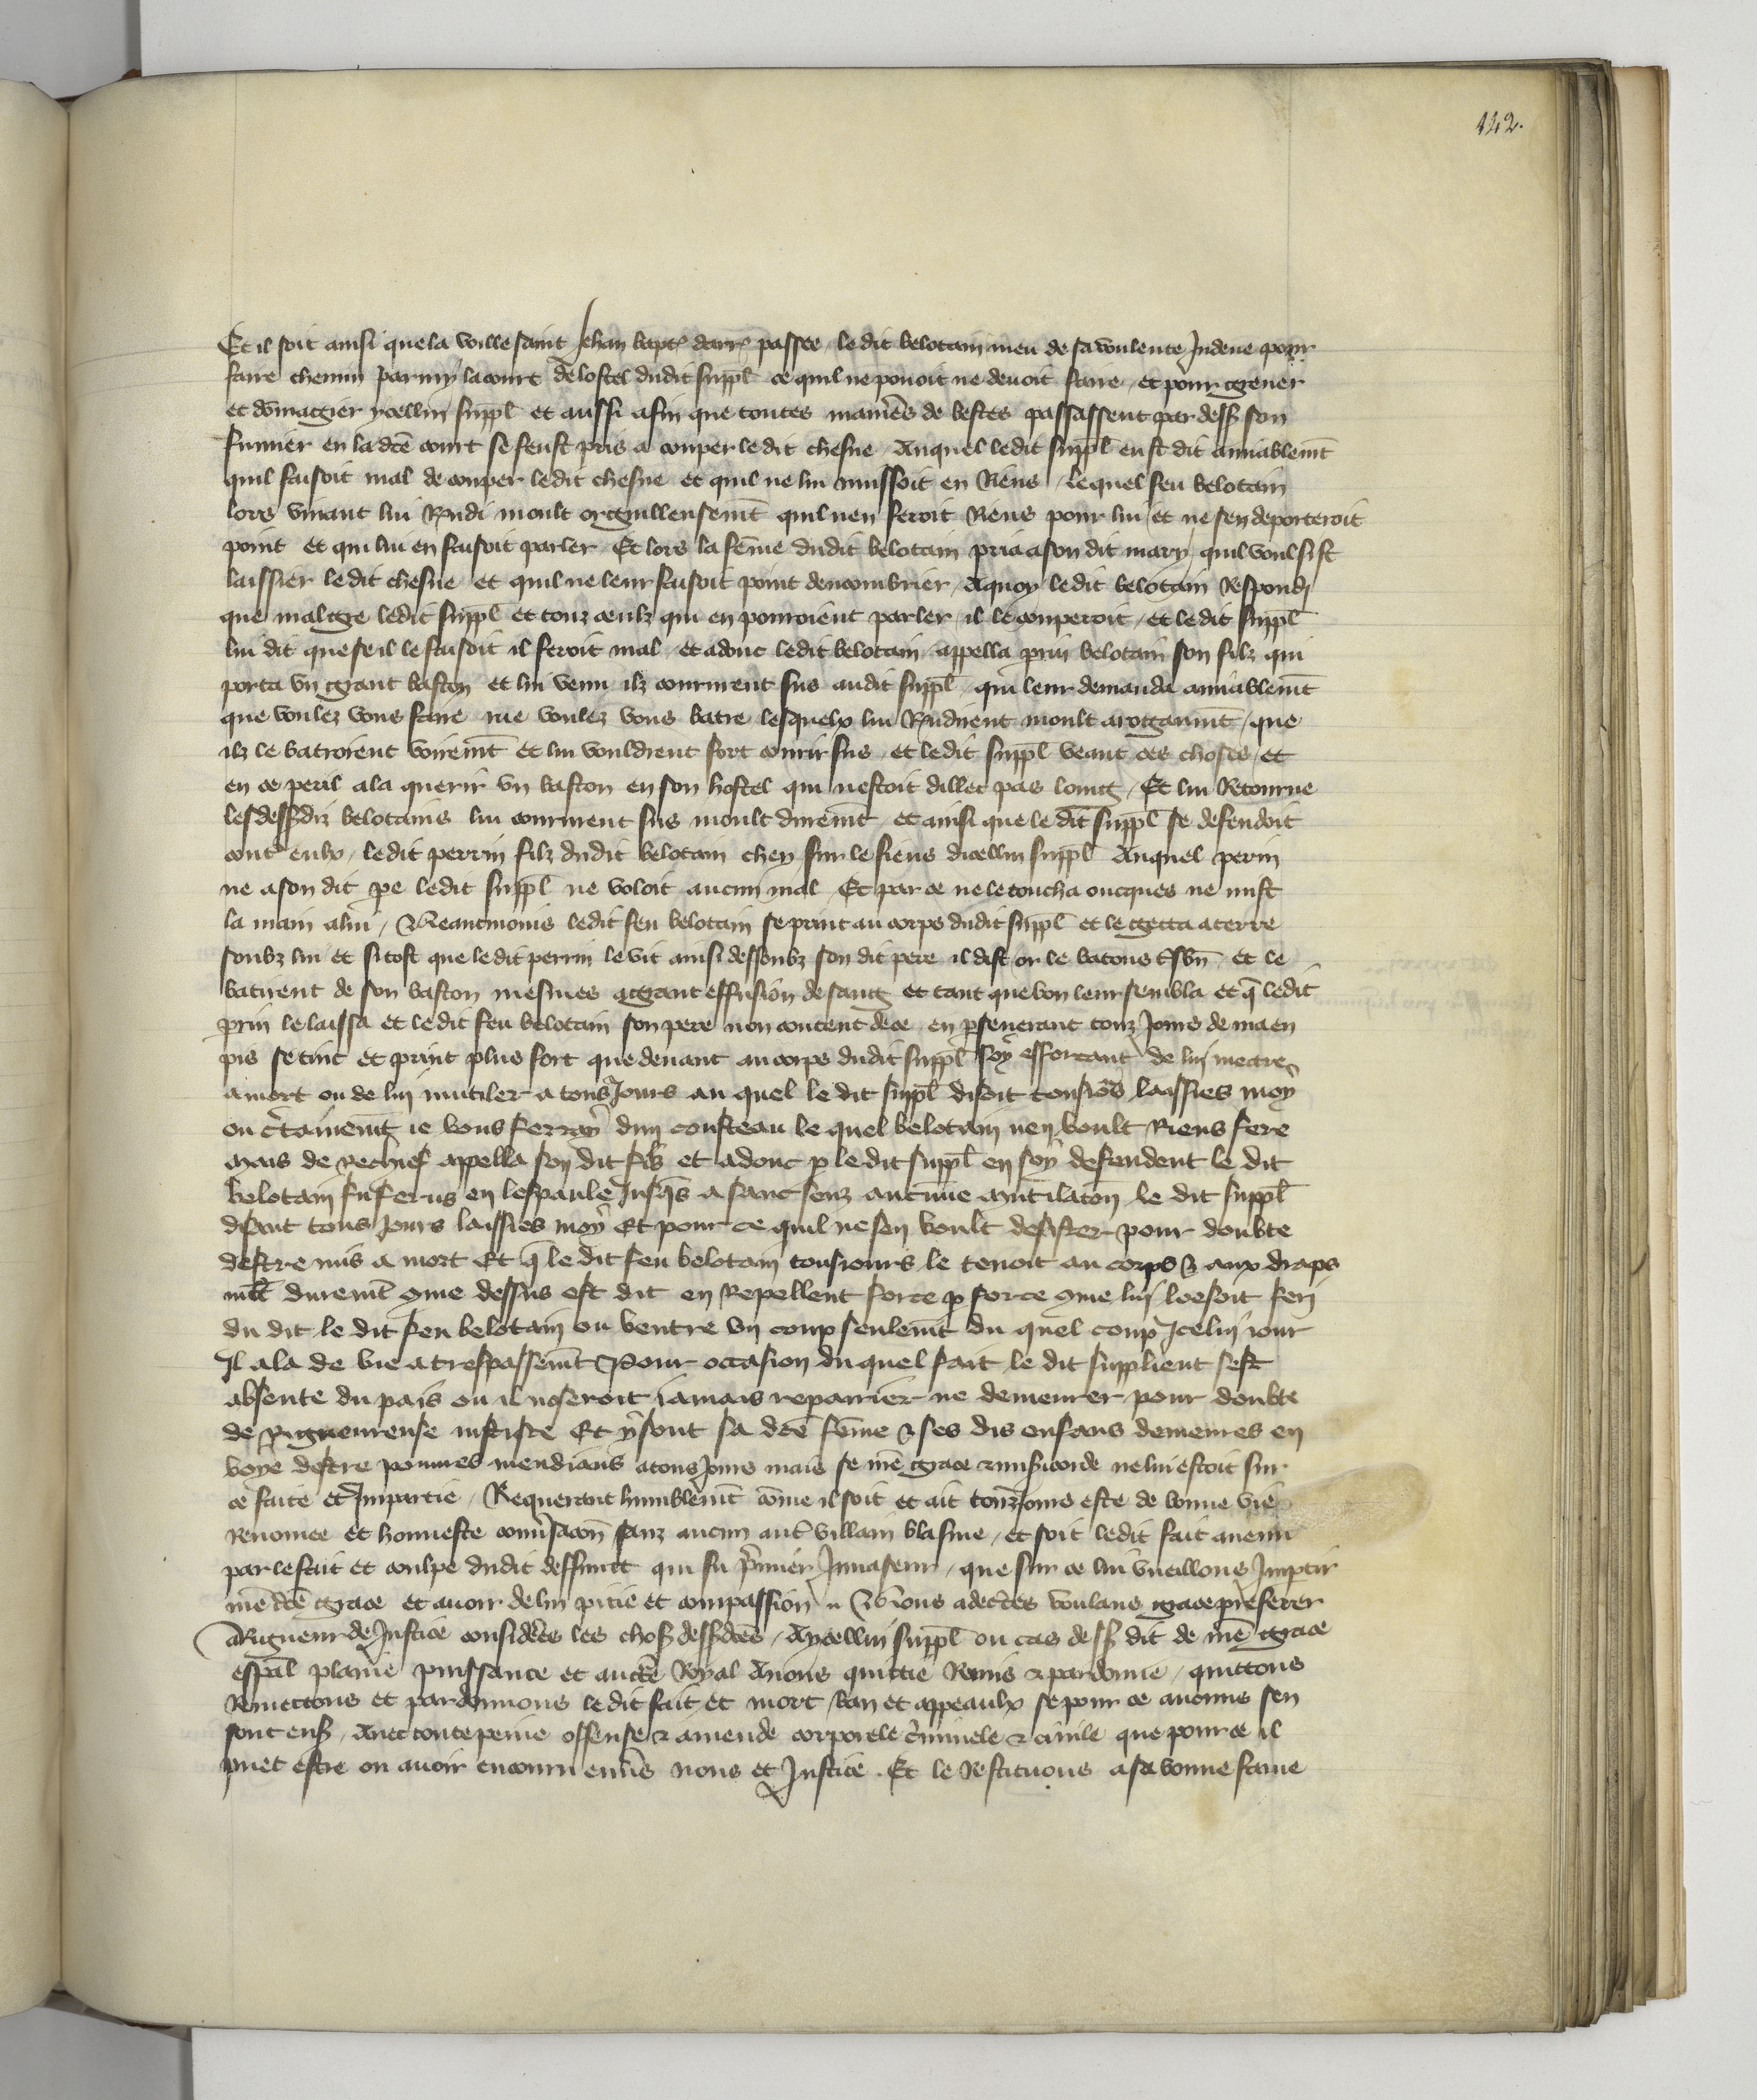 142.
Et il soit ainsi que la voille saint Jehan bapt^e darr^e passee ledit belotain meu de sa voulente Indeue pour
faire chemin parmy la court de lostel dudit suppl ce quil ne pouoit ne deuoit faire et pour greuer
et domagier ycellui suppl et aussi afin que toutes manieres de bestes passassent par dess son
fumier en la dce court se feust pris a couper ledit chesne Auquel ledit suppl eust dit amiablemt
quil faisoit mal de couper ledit chesne et quil ne lui nuissoit en Riens / lequel feu belotain
lors viuant lui Rndi moult orguilleusemt quil nen feroit Riens pour lui et ne sen deporteroit
point et qui lui en faisoit parler Et lors la feme dudit belotain pria a son dit mary quil voulsist
laissier ledit chesne et quil ne leur faisoit point dencombrier Aquoy ledit belotain Respondi
que malgre ledit suppl et touz ceulz qui en pourroient parler il le couperoit et ledit suppl
lui dit que se il le faisoit il feroit mal et adonc ledit belotain appella prin belotain son filz qui
porta vn grant baston et lui venu ilz coururent sus audit suppl qui leur demanda amiablemt
que voulez vous faire me voulez vous batre lesquelx lui Rndirent moult arroganmt que
ilz le batroient voiremt et lui vouldrent fort courir sus et ledit suppl veant ces choses et
en ce peril ala querir vn baston en son hostel qui nestoit dillec pas loing Et lui Retourne
les dessdiz belotains lui coururent sus moult duremt et ainsi que le dit suppl se defendoit
cont^e eulx ledit perrin filz dudit belotain chey sur le fiens dicellui suppl Auquel perrin
ne a son dit pe ledit suppl ne voloit aucun mal Et par ce ne le toucha oncques ne mist
la main a lui / Neantmoins ledit feu belotain se print au corps dudit suppl et le getta a terre
soubz lui et si tost que ledit perrin le vit ainsi dessoubz son dit pere il dist or le batons tsbn Et le
batirent de son baston mesmes a grant effusion de sang et tant que bon leur sembla et q ledit
prin le laissa et ledit feu belotain son pere non content de ce en pseuerant touz Jours de mal en
pis se tint et print plus fort que deuant au corps dudit suppl soy efforcant de lui mectre
a mort ou de luy mutiler a tousJours au quel le dit suppl disoit tousiors laissies moy
ou ctainemt ie vous ferray dun cousteau le quel belotain nen voult Riens fere
Mais de rechief appella son dit filz et adonc p le dit suppl en soy defendent le dit
belotain fu ferus en lespaule Jusqs a sanc senz aucune mutilaton le dit suppl
disant tous Jours laissies moy Et pour ce quil ne sen voult desister pour doubte
destre mis a mort Et q le dit feu belotain tousiours le tenoit au corps & aux draps
mlt duremt 9me dessus est dit en Repellent force p force 9me luy loesoit feri
du dit le dit feu belotain ou ventre vn coup seulemt du quel coup Jceluy iour
Il ala de vie a trespassemt Pour occasion du quel fait le dit supplient sest
absente du pais ou il noseroit iamais repairier ne demeurer pour doubte
de Rigueureuse iustiste Et y sont sa dce feme & ses dis enfans demeures en
voye destre poures mendians a tous Jours mais se nre grace & misicorde ne lui estoit sur
ce faite et Impartie / Requerant humblemt come il soit et ait touz Jours este de bonne vie
Renomee et honneste conuisacon sanz aucun aut^e villain blasme / et soit ledit fait auenu
par le fait et coulpe dudit deffunct qui fu primier Inuaseur / que sur ce lui vueillons Imptir
nre dce grace et auoir de lui pitie et compassion Nous adectes voulans grace preferer
a Rigueur de Justice considerees les choses dessdces / Aycellui suppl ou cas dess dit de nre grace
espal plaine puissance et aucte Royal Auons quittie Remis & pardonne / quittons
Remettons et pardonnons ledit fait et mort / ban et appeaulx se pour ce aucuns sen
sont ens / Auec toute peine offense & amende corporele criminele & ciuile que pour ce il
puet estre ou auoir encouru enus nous et Justice . Et le Restituons a sa bonne fame